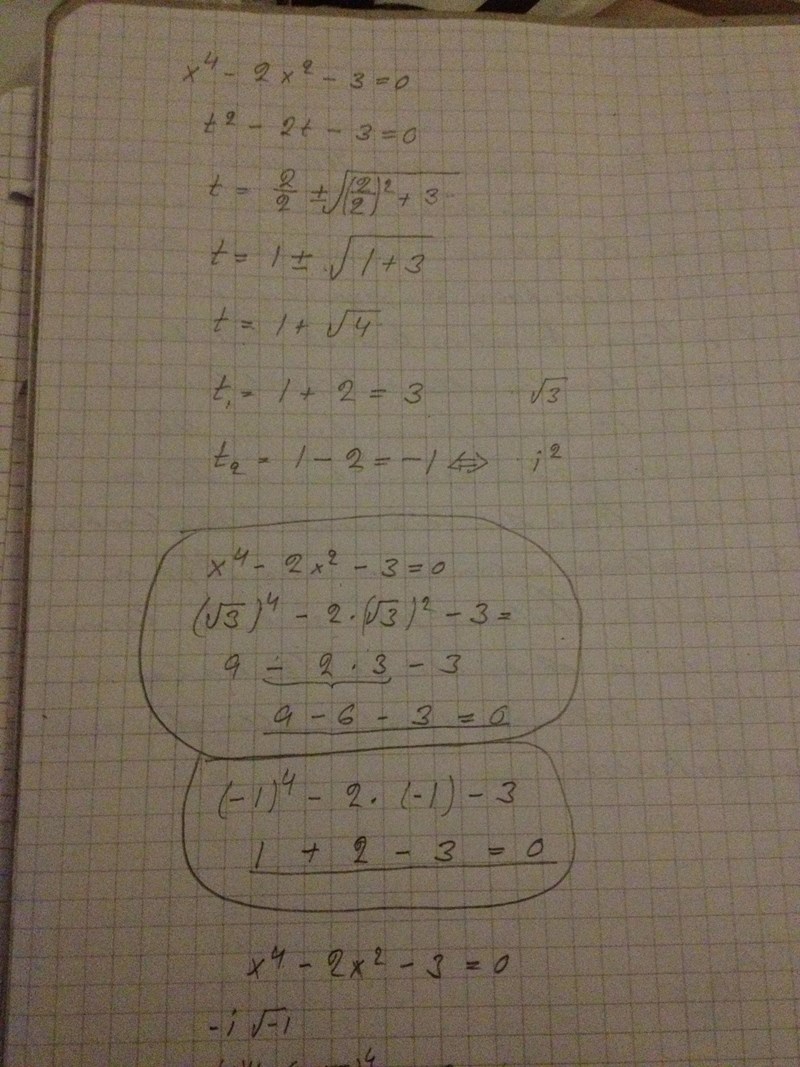 x⁴ - 2x² - 3 = 0
t² - 2t - 3 = 0
t = 2/2 ± √((2/2)² + 3
t = 1 ± √(1 + 3)
t = 1 + √4
t₁ = 1 + 2 = 3 √3
t₂ = 1 - 2 = -1 ⇔ i²
x⁴ - 2x² - 3 = 0
(√3)⁴ - 2·(√3)² - 3 =
9 - 2·3 - 3
9 - 6 - 3 = 0
(-1)⁴ - 2·(-1) - 3
1 + 2 - 3 = 0
x⁴ - 2x² - 3 = 0
-i √-1